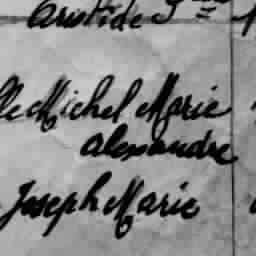 Aristide
Michel Marie
alexandre
Joseph Marie